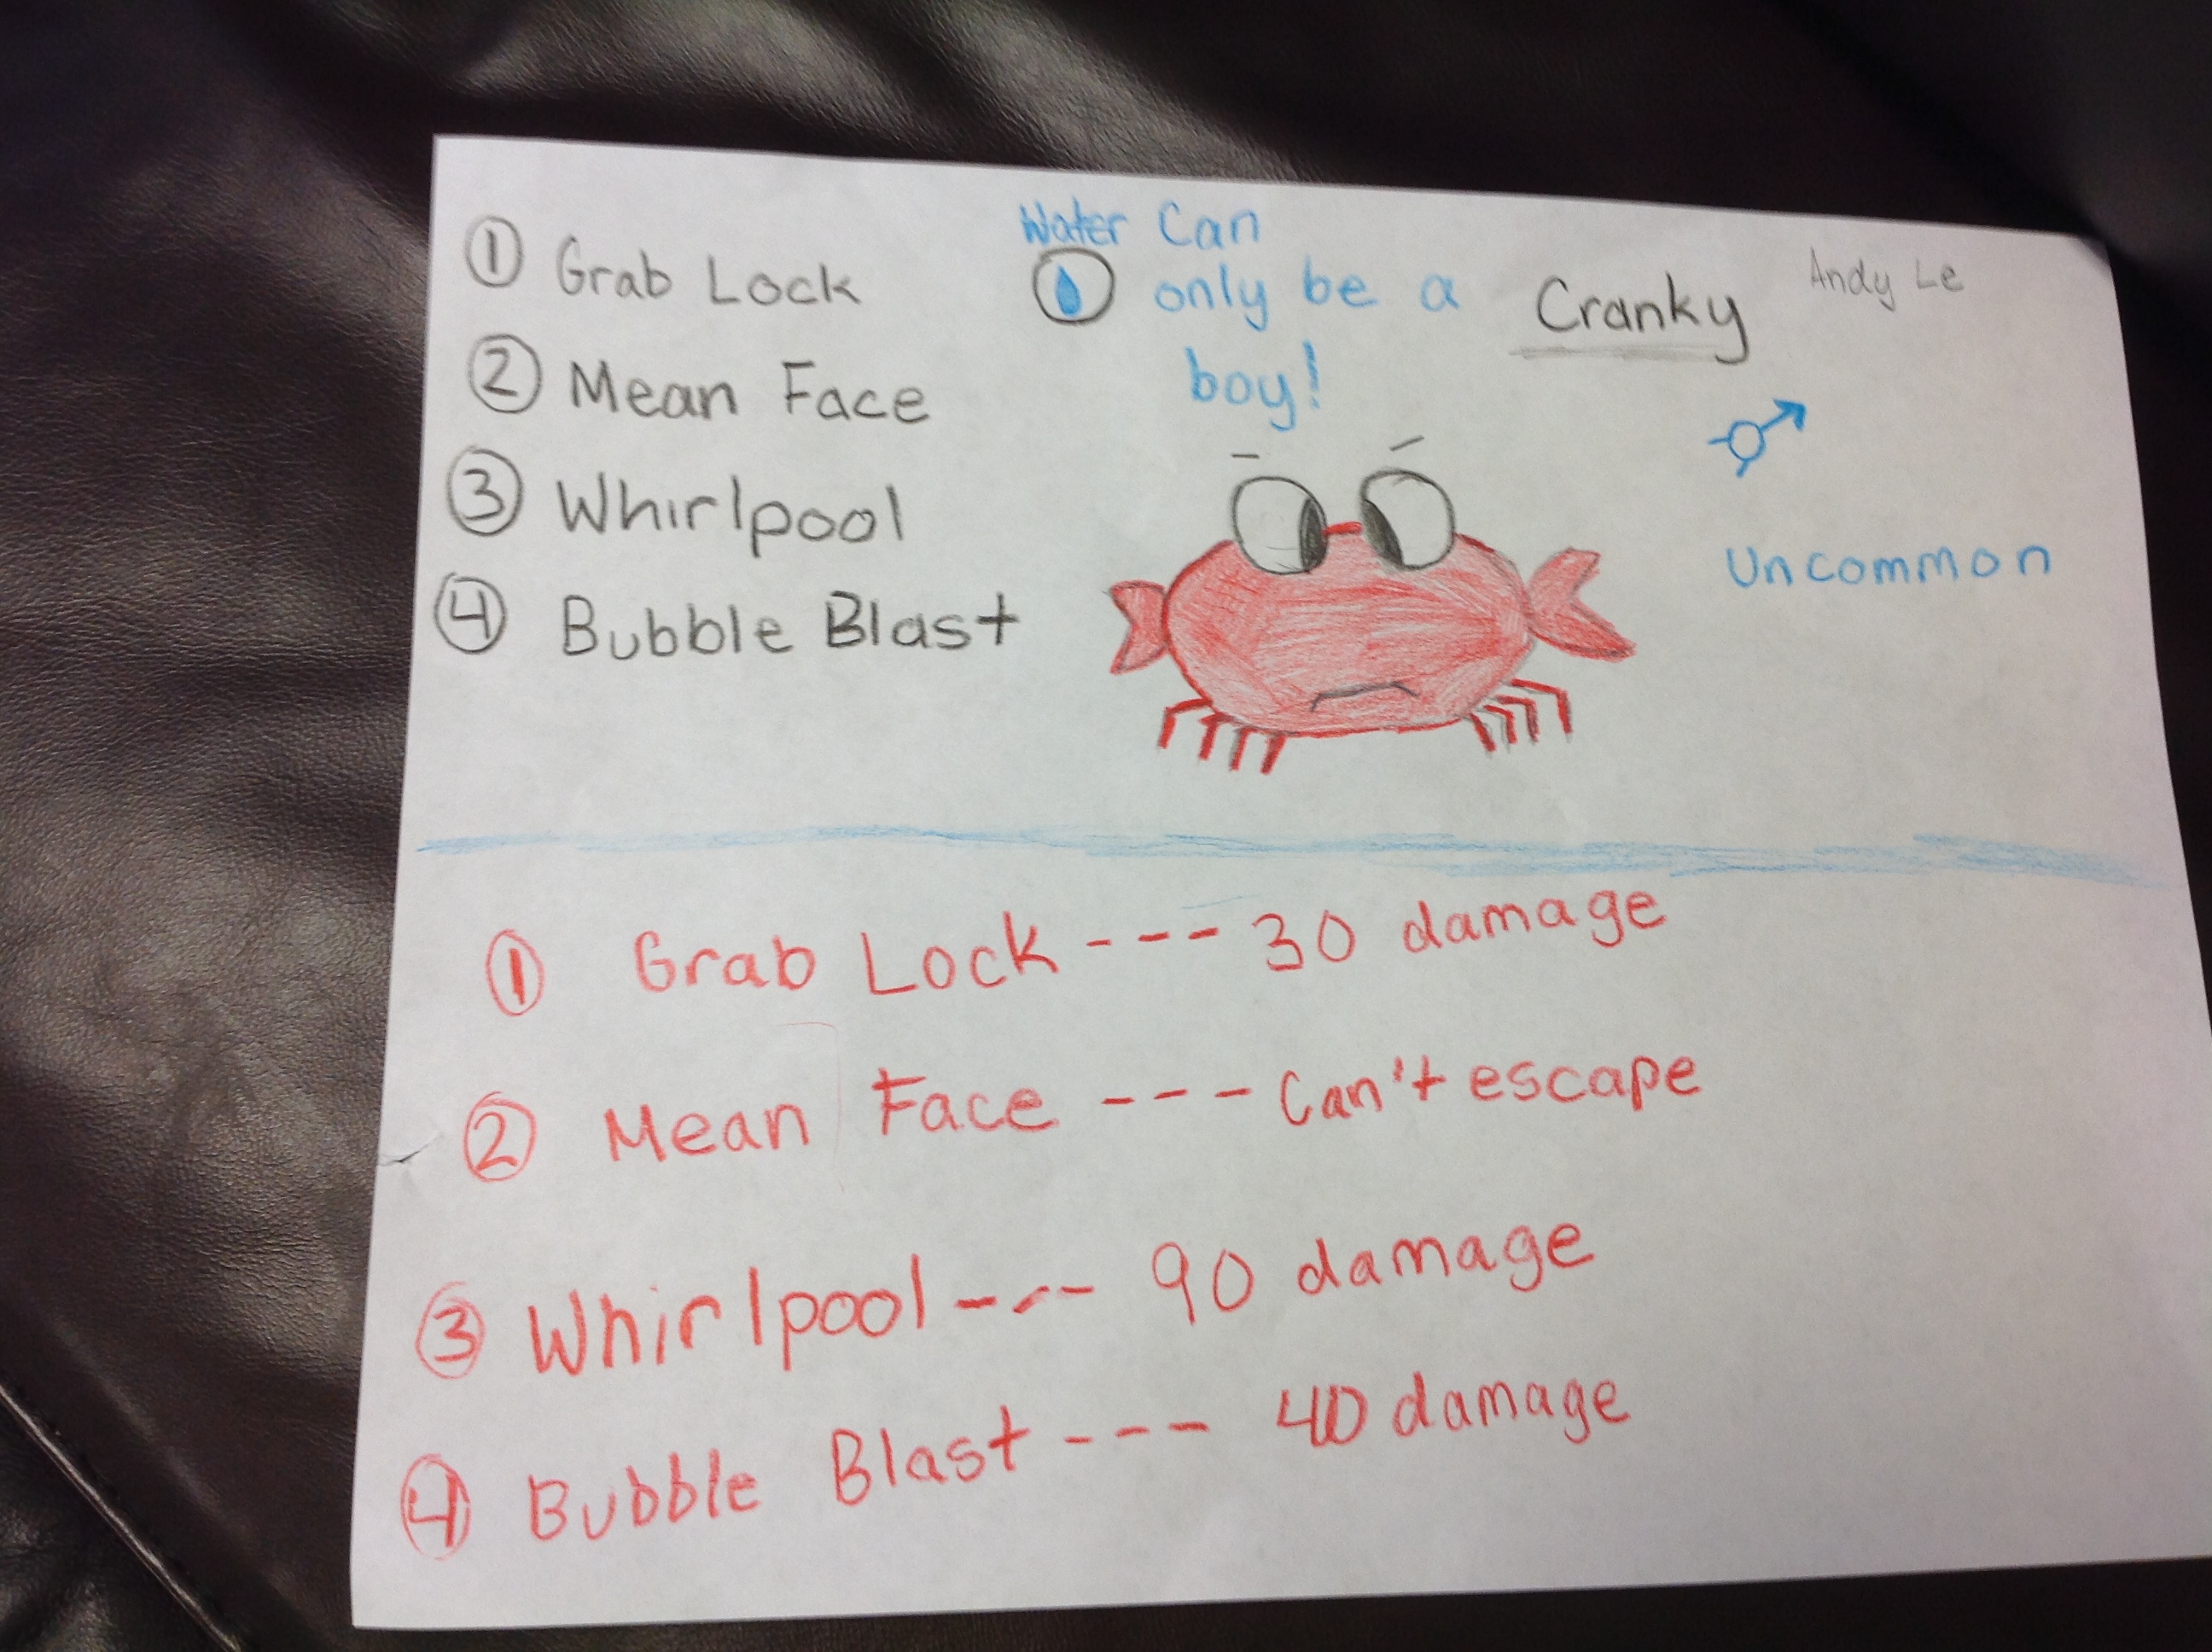 ① Grab Lock
② Mean Face
③ Whirlpool
④ Bubble Blast
Water Can
only be a
boy!
Cranky
Andy Le
Uncommon
① Grab Lock --- 30 damage
② Mean Face --- Can't escape
③ Whirlpool --- 90 damage
④ Bubble Blast --- 40 damage